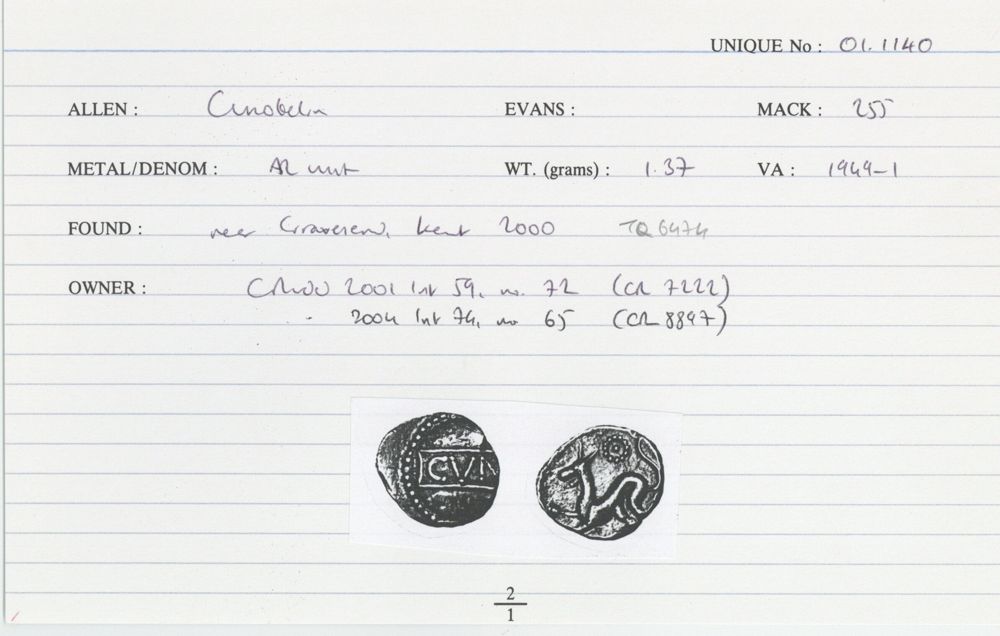 UNIQUE No : 01.1140
ALLEN : Cunobelin EVANS : MACK : 255
METAL/DENOM : AR unit WT. (grams) : 1.37 VA : 1949-1
FOUND : near Gravesend, Kent 2000 TQ 6474
OWNER : 2001 list 59, no. 72 (CR 7222)
" 2004 list 74, no 65 (CR 8897)
CVN
2
1